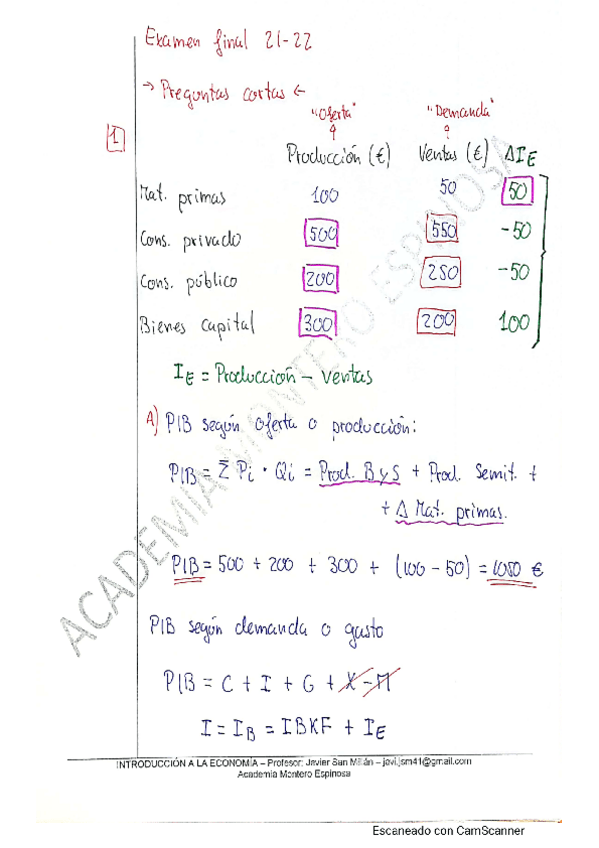 Examen final 21-22
→ Preguntas cortas ←
"Oferta" "Demanda"
1
Producción (€) Ventas (€) ΔI_E
Mat. primas 100 50 50
Cons. privado 500 550 -50
Cons. público 200 250 -50
Bienes capital 300 200 100
I_E = Producción - Ventas
A) PIB según oferta o producción:
PIB = Σ Pi · Qi = Prod. B y S + Prod. Semit. +
+ Δ Mat. primas.
PIB = 500 + 200 + 300 + (100 - 50) = 1050 €
PIB según demanda o gasto
PIB = C + I + G + X - M
I = I_B = IBKF + I_E
INTRODUCCIÓN A LA ECONOMÍA – Profesor: Javier San Millán – javi.jsm41@gmail.com
Academia Montero Espinosa
ACADEMIA MONTERO ESPINOSA
Escaneado con CamScanner